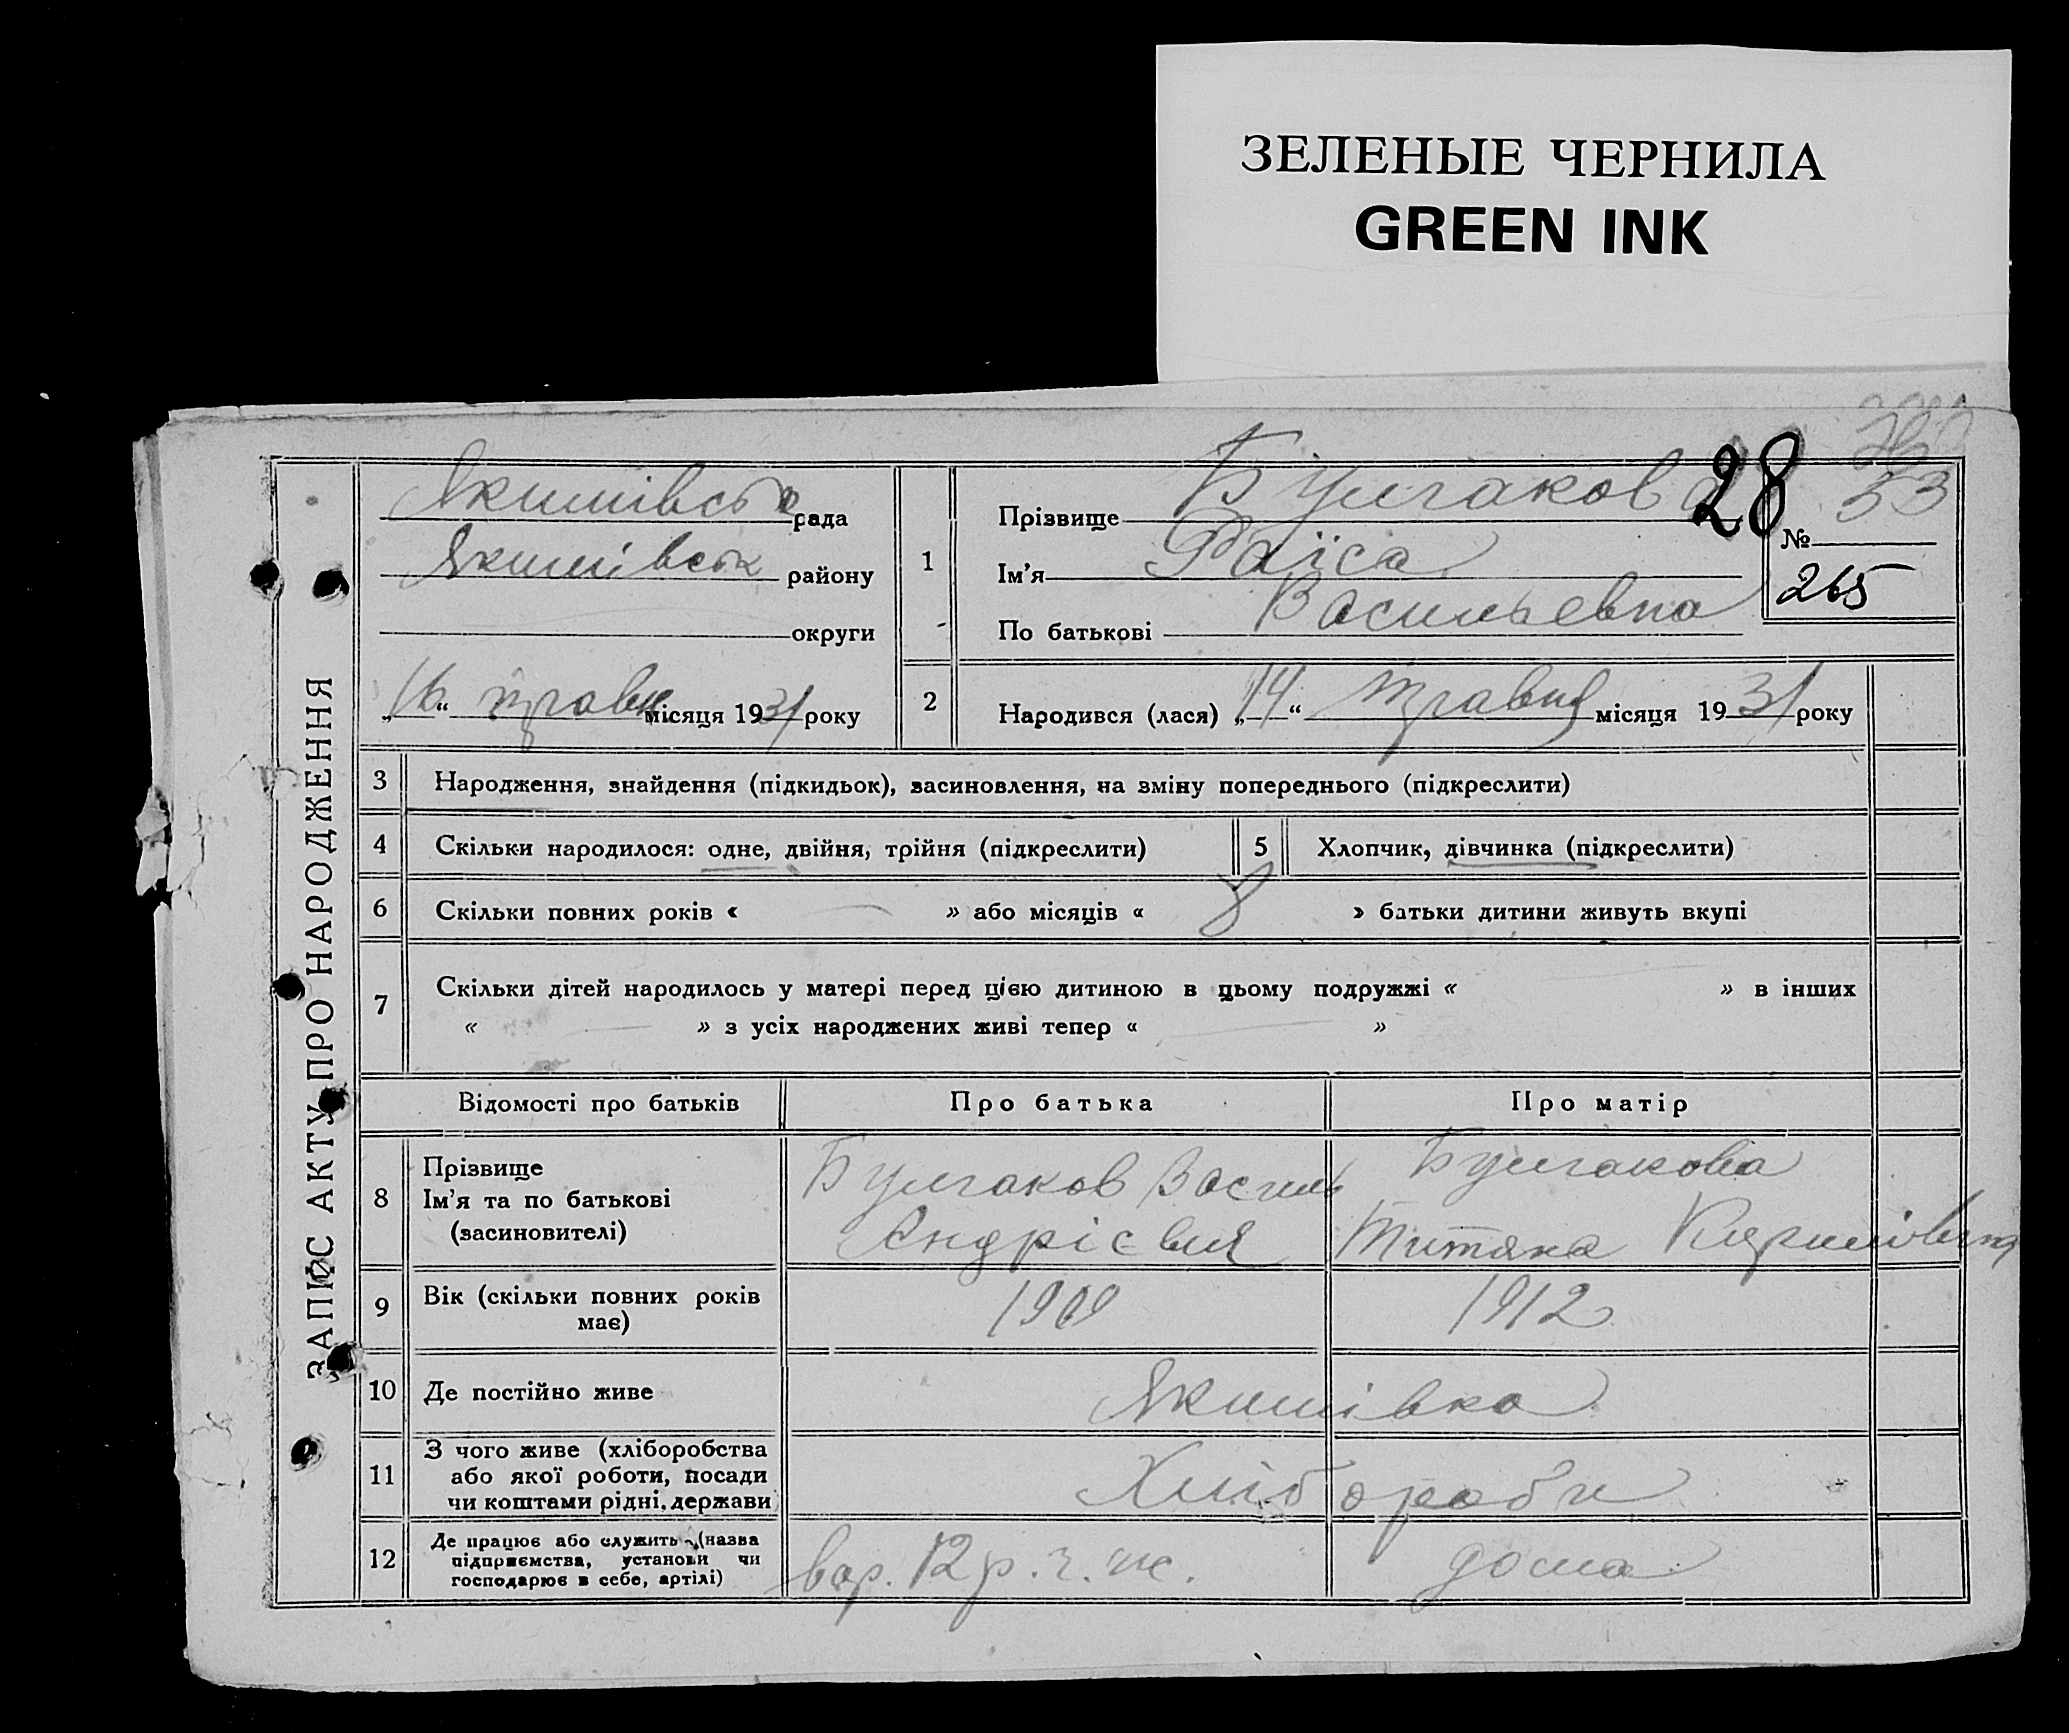 ЗЕЛЕНЫЕ ЧЕРНИЛА
GREEN INK
ЗАПИС АКТУ ПРО НАРОДЖЕННЯ
Якимівська рада
Якимівськ району
округи
„16“ травня місяця 1931 року
1 Прізвище Булгакова
Ім'я Раїса
По батькові Васильевна
28
№ 33
265
2 Народився (лася) „14“ Травня місяця 1931 року
3 Народження, знайдення (підкидьок), засиновлення, на зміну попереднього (підкреслити)
4 Скільки народилося: одне, двійня, трійня (підкреслити) 5 Хлопчик, дівчинка (підкреслити)
6 Скільки повних років « — » або місяців « 8 » батьки дитини живуть вкупі
7 Скільки дітей народилось у матері перед цією дитиною в цьому подружжі « » в інших
« — » з усіх народжених живі тепер « — »
Відомості про батьків Про батька Про матір
8 Прізвище
Ім'я та по батькові
(засиновителі)
Булгаков Василь
Андрієвич
Булгакова
Титяна
9 Вік (скільки повних років
має)
1909 1912
10 Де постійно живе Якимівка
11 З чого живе (хліборобства
або якої роботи, посади
чи коштами рідні, держави
Хлібороби
12 Де працює або служить (назва
підприємства, установи чи
господарює в себе, артілі)
дома